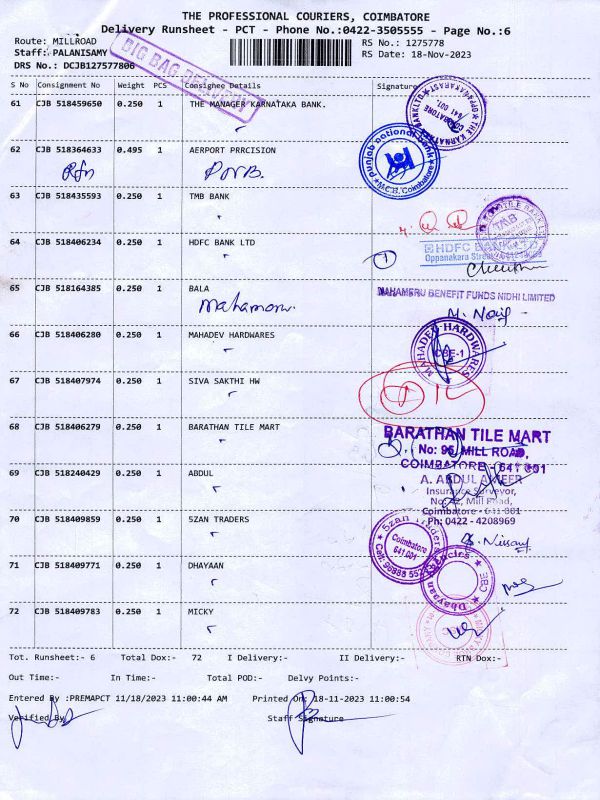 THE PROFESSIONAL COURIERS, COIMBATORE
Delivery Runsheet - PCT - Phone No.:0422-3505555 - Page No.:6
Route: MILLROAD
RS No.: 1275778
Staff: PALANISAMY
RS Date: 18-Nov-2023
DRS No.: DCJB127577806
BIG BAG DELIVERY
S No Consignment No Weight PCS Consignee Details Signature
61 CJB 518459650 0.250 1 THE MANAGER KARNATAKA BANK.
THE KARNATAKA BANK LTD COIMBATORE 641 001.
62 CJB 518364633 0.495 1 AERPORT PRRCISION
punjab national Bank
M.C.B., Coimbatore
PNB.
63 CJB 518435593 0.250 1 TMB BANK
TMB
64 CJB 518406234 0.250 1 HDFC BANK LTD
HDFC BANK
Oppanakara Street
1
65 CJB 518164385 0.250 1 BALA
MAHAMERU BENEFIT FUNDS NIDHI LIMITED
66 CJB 518406280 0.250 1 MAHADEV HARDWARES
MAHADEV HARDWARES
CBE-1
67 CJB 518407974 0.250 1 SIVA SAKTHI HW
68 CJB 518406279 0.250 1 BARATHAN TILE MART
BARATHAN TILE MART
No: 95, MILL ROAD,
COIMBATORE - 641 001
69 CJB 518240429 0.250 1 ABDUL
A. ABDUL AMEER
Insurance Surveyor,
Mill Road,
Coimbatore - 641 001
Ph: 0422 - 4208969
70 CJB 518409859 0.250 1 5ZAN TRADERS
5zan Traders
Coimbatore
641 001
71 CJB 518409771 0.250 1 DHAYAAN
Dhayaan Agencies CBE
72 CJB 518409783 0.250 1 MICKY
Tot. Runsheet:- 6 Total Dox:- 72 I Delivery:- II Delivery:- RTN Dox:-
Out Time:- In Time:- Total POD:- Delvy Points:-
Entered By :PREMAPCT 11/18/2023 11:00:44 AM Printed On: 18-11-2023 11:00:54
Verified By
Staff Signature